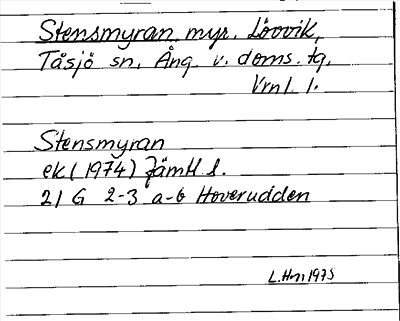 Stensmyran myr. Lövvik,
Tåsjö sn, Ång. v. doms. tg.
Vrnl l.
Stensmyran
ek (1974) Jämtl l.
21 G 2-3 a-b Hoverudden
L.Hn 1975